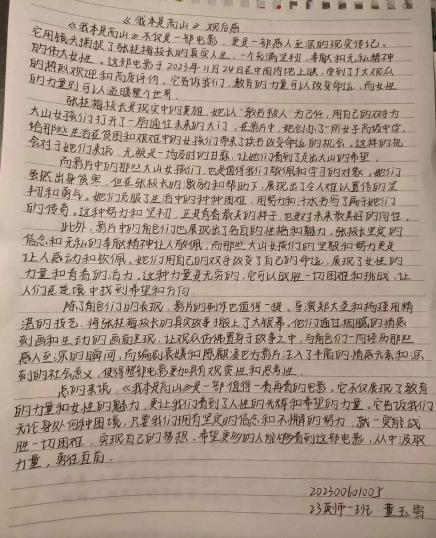 《我本是高山》观后感
《我本是高山》不仅是一部电影，更是一部感人至深的现实传记。
它用镜头捕捉了张桂梅校长的真实人生，一个充满坚韧、奉献和无私精神
的伟大女性。这部电影于2023年11月24日在中国内地上映，受到了广大观众
的热烈欢迎和高度评价。它告诉我们，教育的力量可以改变命运，而女性
的力量则可以温暖整个世界。
张桂梅校长是现实中的英雄，她以"教书救人"为己任，用自己的双手为
大山女孩们打开了一扇通往未来的大门。在影片中，她创办了一所女子高级中学，
给那些生活在贫困和艰难中的女孩们带来了读书改变命运的机会，这样的机
会对于她们来说，无疑是一场及时的甘霖，让她们看到了走出大山的希望。
而影片中的那些大山女孩们，也是值得我们敬佩和学习的对象，她们
虽然出身贫寒，但在张校长的激励和帮助下，展现出了令人难以置信的坚
韧和勇气。她们克服了生活中的种种困难，用努力和汗水书写了属于她们
的传奇。这种努力和坚韧，正是青春最美的样子，也是对未来最美好的向往。
此外，影片中的角色们也展现出了各自的性格和魅力。张校长坚定的
信念和无私的奉献精神让人敬佩，而那些大山女孩们的坚毅和努力更是
让人感动和钦佩。她们用自己的双手改变了自己的命运，展现了女性的
力量和青春的活力，这种力量是无穷的，它可以战胜一切困难和挑战，让
人们在逆境中找到希望和方向。
除了角色们的表现，影片的制作也值得一提。导演郑大圣和杨瑾用精
湛的技艺，将张桂梅校长的真实故事搬上了大银幕。他们通过细腻的情感
刻画和生动的画面呈现，让观众仿佛置身于故事之中，与角色们一同经历那些
感人至深的瞬间，而编剧袁媛和陈颙凌也为影片注入了丰富的情感元素和深
刻的社会意义，使得整部电影更加具有观赏性和思考性。
总的来说，《我本是高山》是一部值得一看再看的电影，它不仅展现了教育
的力量和女性的魅力，更让我们看到了人性的光辉和希望的力量。它告诉我们
无论身处何种困境，只要我们拥有坚定的信念和不懈的努力，就一定能战
胜一切困难，实现自己的梦想。希望更多的人能够看到这部电影，从中汲取
力量，勇往直前。
202300601005
23英师一班 董玉雪